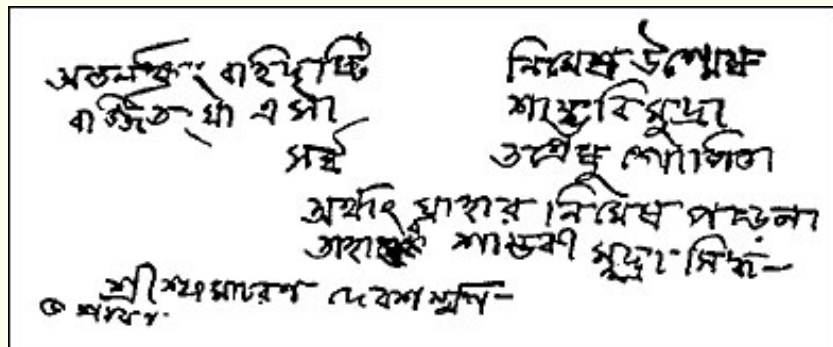 অন্তর্লক্ষ্য বহির্দৃষ্টি নিমেষ উন্মেষ
বর্জ্জিত এসা শাম্ভবি মুদ্রা
সর্ব্ব তন্ত্রেষু গোপিতা
অর্থাৎ যাহার নিমেষ পড়েনা
শাম্ভবী মুদ্রা সিদ্ধ—
শ্রীশ্যামাচরণ দেবশর্ম্মণ—